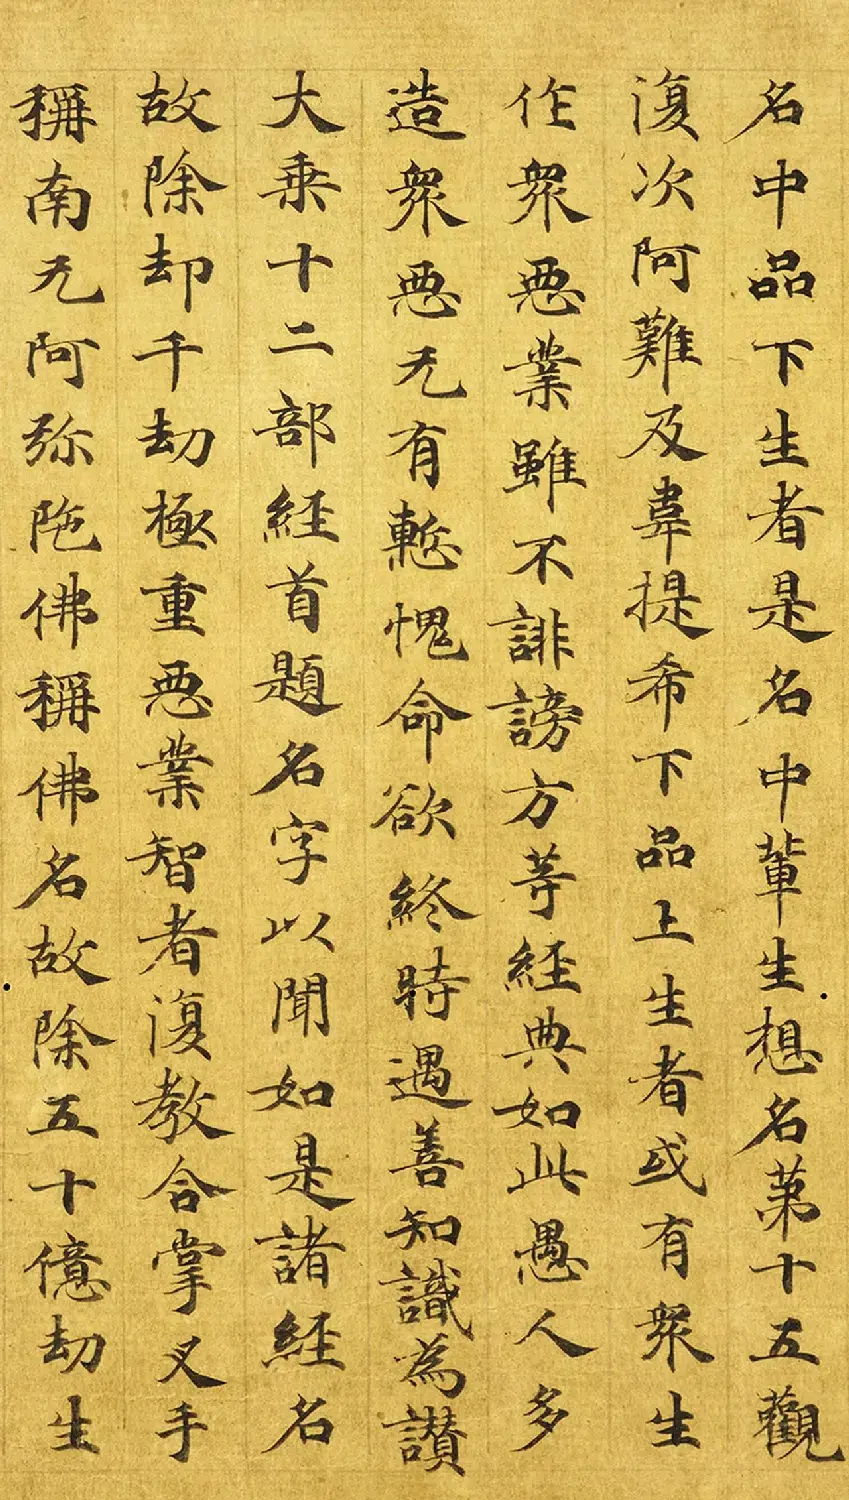 名中品下生者是名中輩生想名第十五觀
復次阿難及韋提希下品上生者或有衆生
作衆惡業雖不誹謗方等經典如此愚人多
造衆惡无有慙愧命欲終時遇善知識為讃
大乗十二部経首題名字以聞如是諸経名
故除却千劫極重惡業智者復教合掌叉手
稱南无阿弥陁佛稱佛名故除五十億劫生